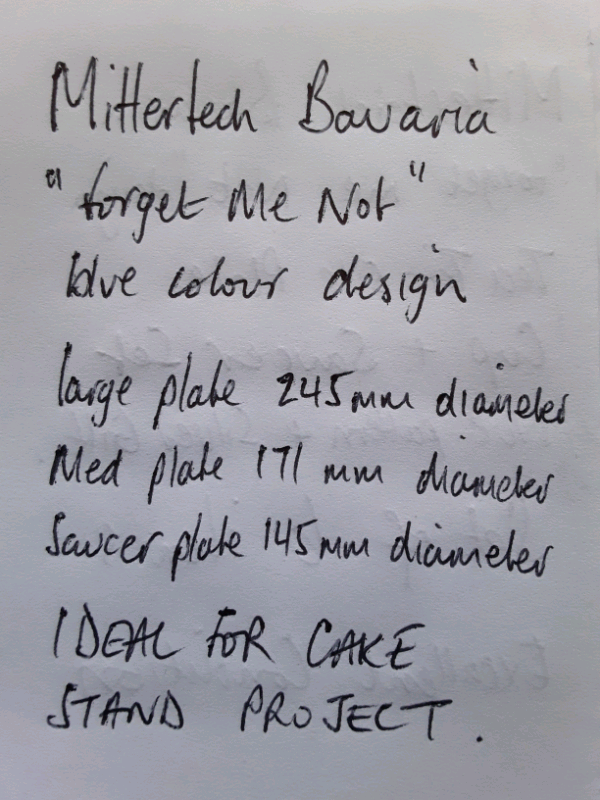 Mittertech Bavaria
"Forget Me Not"
blue colour design
large plate 245mm diameter
Med plate 171 mm diameter
Saucer plate 145mm diameter
IDEAL FOR CAKE
STAND PROJECT.